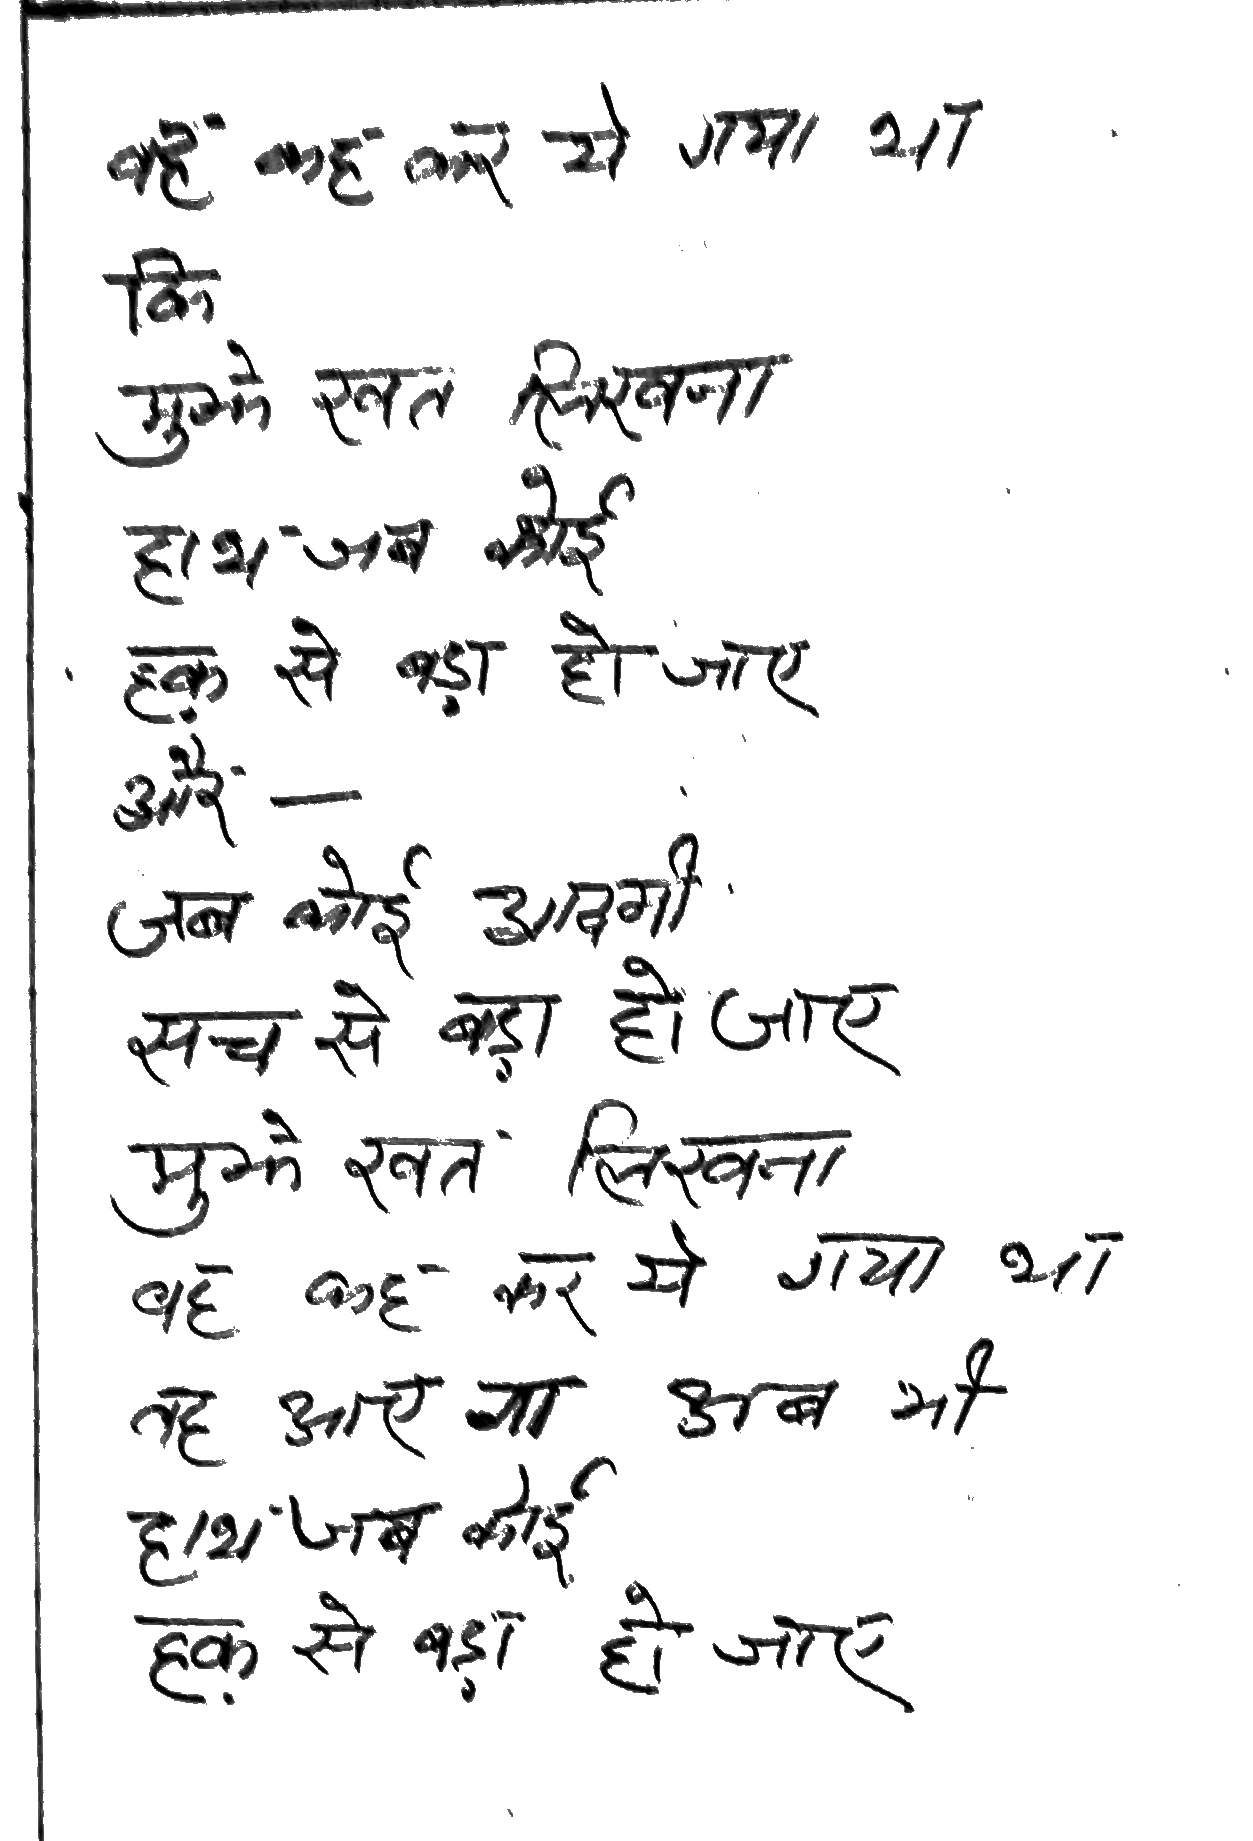 वह कह कर ये गया था
कि
मुझे खत लिखना
हाथ जब कोई
हक़ से बड़ा हो जाए
और —
जब कोई आदमी
सच से बड़ा हो जाए
मुझे खत लिखना
वह कह कर ये गया था
वह आए गा अब भी
हाथ जब कोई
हक़ से बड़ा हो जाए